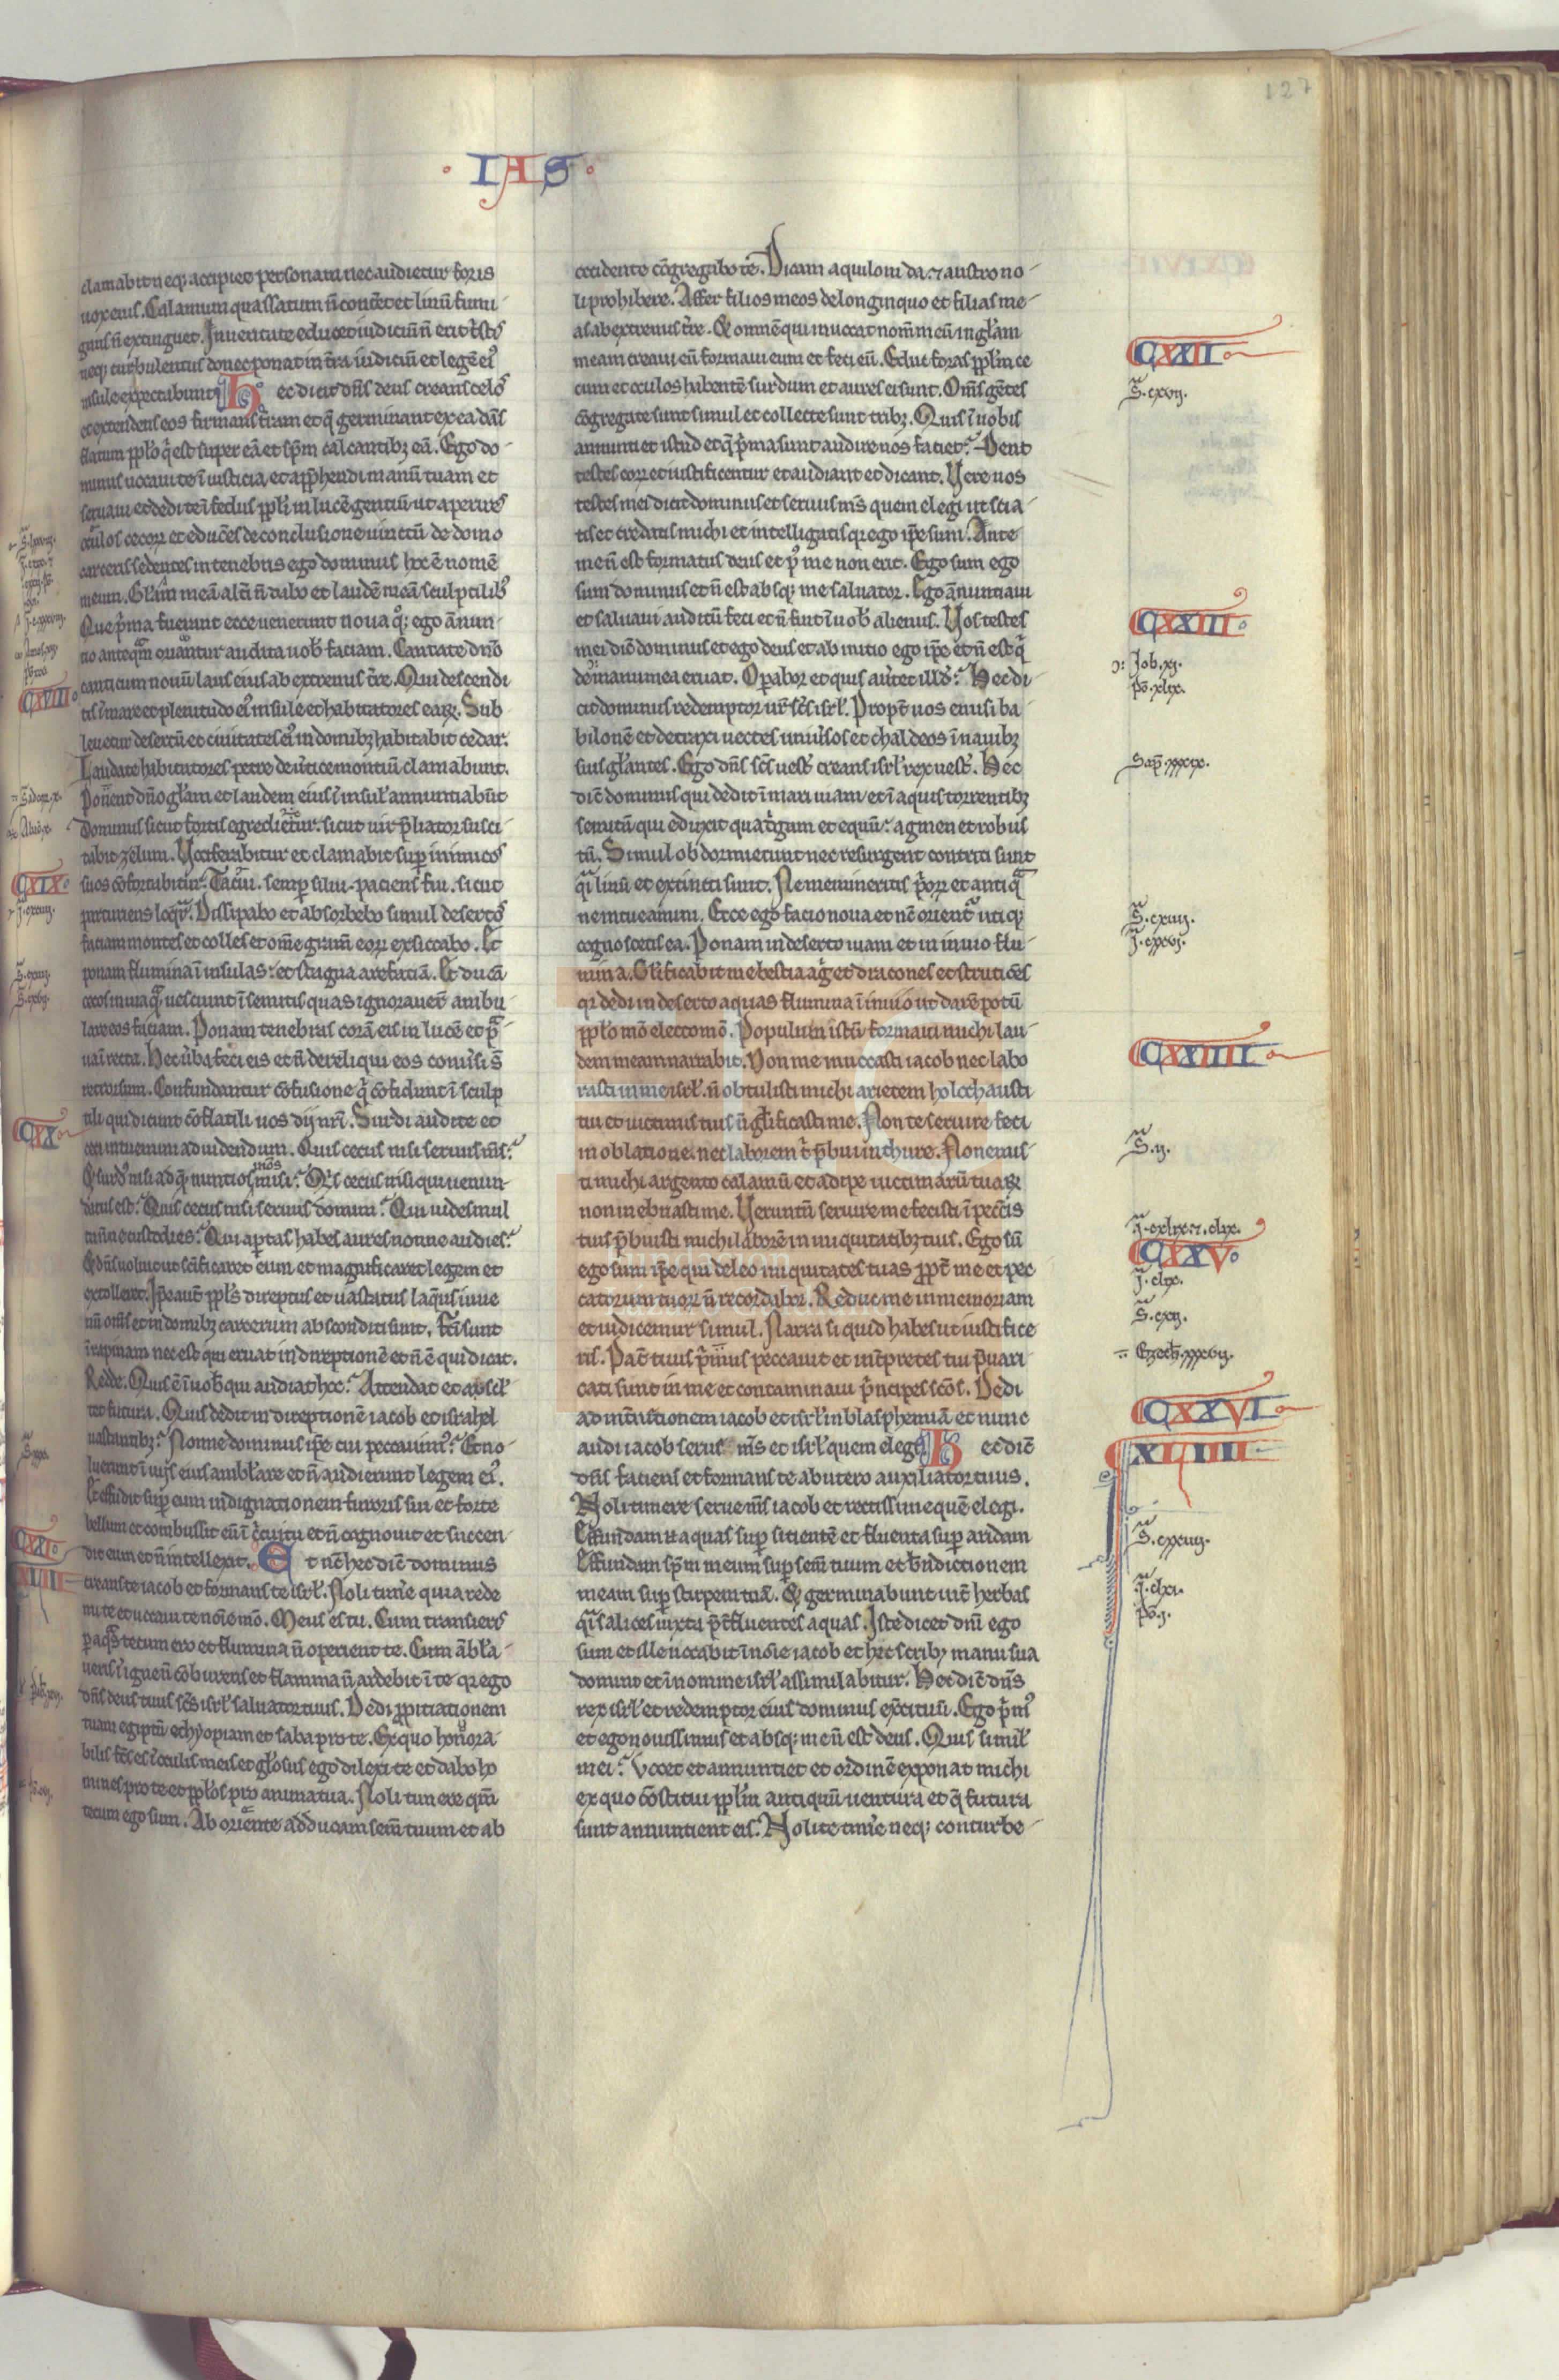 127
· I A S ·
clamabit neq; accipiet personam nec audietur foris
uox eius. Calamum quassatum ñ conteret et linũ fumi
gans ñ extinguet. In ueritate educet iudiciũ ñ erit t̃stis
neq; turbulentus donec ponat in t̃ra iudiciũ et legẽ ei᷒
insule expectabunt. Hec dicit dñs deus creans celos
et extendens eos firmans t̃ram et q̃ germinant ex ea dans
flatum ppl̃o q̃ est super eã et sp̃m calcantibꝫ eã. Ego do
minus uocaui te ĩ iusticia, et app̃hendi manũ tuam et
seruaui et dedi te ĩ fedus ppl̃i in lucẽ gentiũ ut aperires
oculos cecoꝝ et educẽs de conclusione uinctũ de domo
carceris sedentes in tenebris ego dominus hoc ẽ nomẽ
meum. Gl̃iam meã alt̃i ñ dabo et laudẽ meã sculptilibꝫ
Que p̃ma fuerunt ecce uenerunt noua q̊; ego ãnun
tio anteq̃m oriantur audita uob̃ faciam. Cantate dño
canticum nouũ laus eius ab extremis t̃re. Qui descendi
tis ĩ mare et plenitudo ei᷒ insule et habitatores eaꝝ. Sub
leuetur desertũ et ciuitates ei᷒ in domibꝫ habitabit cedar.
Laudate habitatores petre de ũtice montiũ clamabunt.
Ponent dño gl̃am et laudem eius ĩ insul̃ annuntiabũt
Dominus sicut fortis egredietur. sicut uir p̃liator susci
tabit zelum. Vociferabitur et clamabit sup̃ inimicos
suos cõfortabitur. Tacui. semp̃ silui. paciens fui. sicut
parturiens loq̃r. Dissipabo et absorbebo simul desertos
faciam montes et colles et om̃e gramẽ eoꝝ exsiccabo. Et
ponam flumina ĩ insulas: et stagna arefaciã. Et ducã
cecos in uia q̃ nesciunt ĩ semitis quas ignorauer̃t ambu
lare eos faciam. Ponam tenebras corã eis in lucẽ et p̃
ua ĩ recta. Hec ũba feci eis et ñ dereliqui eos conũsi s̃
retrorsum. Confundantur cõfusione q̃ cõfidunt ĩ sculp
tili qui dicunt cõflatili uos dij nr̃i. Surdi audite et
ceci intuemini ad uidendum. Quis cecus nisi seruus m̃s?
Q̃ surd᷒ nisi ad q̃ nuntios mõs misi? Q̃s cecus nisi qui uenun
datus est? Quis cecus nisi seruus domini? Qui uides mul
ta ñne custodies? Qui ap̃tas habes aures nonne audies?
Q̃ dñs uoluit ut sc̃ificaret eum et magnificaret legem et
extolleret. Ip̃e aut̃ ppl̃s direptus et uastatus laq̃us iuue
nũ om̃s et in domibꝫ carcerum absconditi sunt. fc̃i sunt
ĩ rapinam nec est qui eruat in direptionẽ et ñ ẽ qui dicat.
Redde. Quis ẽ ĩ uob̃ qui audiat hoc? Attendat et ascul
tet futura. Quis dedit in direptionẽ iacob et israhel
uastantibꝫ? Nonne dominus ip̃e cui peccauim᷒? Et no
luerunt ĩ uijs eius ambl̃are et ñ audierunt legem ei᷒.
Et effudit sup̃ eum indignationem furoris sui et forte
bellum et combussit eũ ĩ c̃cuitu et ñ cognouit et succen
dit eum et ñ intellexit. Et nc̃ hec dic̃ dominus
creans te iacob et formans te isrl̃. Noli tim̃e quia rede
mi te et uocaui te noĩe mõ. Meus es tu. Cum transieris
p̃ aq̃s tecum ero et flumina ñ operient te. Cum ãbl̃a
ueris ĩ igne ñ cõbureris et flamma ñ ardebit ĩ te qꝛ ego
dñs deus tuus sc̃s isrl̃ saluator tuus. Dedi ppitiationem
tuam egiptũ ethyopiam et saba pro te. Ex quo honora
bilis fc̃s es ĩ oculis meis et gl̃osus ego dilexi te et dabo ho
mines pro te et ppl̃os pro anima tua. Noli timere qm̃
tecum ego sum. Ab oriente adducam sem̃ tuum et ab
occidente cõgregabo te. Dicam aquiloni da. ⁊ austro no
li prohibere. Affer filios meos de longinquo et filias me
as ab extremis t̃re. Et omnẽ qui inuocat nom̃ meũ in gl̃am
meam creaui eũ formaui eum et feci eũ. Educ foras ppl̃m ce
cum et oculos habentẽ surdum et aures ei sunt. Om̃s gẽtes
cõgregate sunt simul et collecte sunt tribꝫ. Quis ĩ uobis
annuntiet istud et q̃ p̃ma sunt audire nos faciet? Dent
testes eoꝝ et iustificentur et audiant et dicant. Vere uos
testes mei dicit dominus et seruus m̃s quem elegi ut scia
tis et credatis michi et intelligatis qꝛ ego ip̃e sum. Ante
me ñ est formatus deus et p᷒ me non erit. Ego sum ego
sum dominus et ñ est absq; me saluator. Ego ãnuntiaui
et saluaui auditũ feci et ñ fuit ĩ uob̃ alienus. Vos testes
mei dic̃ dominus et ego deus et ab initio ego ip̃e et ñ est q̃
de manu mea eruat. Op̃abor et quis aũtet ill᷒d? Hec di
cit dominus redemptor ur̃ sc̃s isrl̃. Propt̃ uos emisi ba
bilonẽ et detraxi uectes uniũsos et chaldeos ĩ nauibꝫ
suis gl̃antes. Ego dñs sc̃s uest̃ creans isrl̃ rex uest̃. Hec
dic̃ dominus qui dedit ĩ mari uiam et ĩ aquis torrentibꝫ
semitã qui eduxit quat̃gam et equũ: agmen et robus
tũ. Simul obdormierunt nec resurgent contriti sunt
q̃i linũ et extincti sunt. Ne memineritis p̃oꝝ et antiq̃
ne intueamini. Ecce ego facio noua et nc̃ orient̃ utiq;
cognoscetis ea. Ponam in deserto uiam et in inuio flu
mina. Gl̃ificabit me bestia ag̃ et dracones et strutiões
qꝛ dedi in deserto aquas flumina ĩ inuio ut darẽ potũ
ppl̃o mõ electo mõ. Populum istũ formaui michi lau
dem meam narrabit. Non me inuocasti iacob nec labo
rasti in me isrl̃. ñ obtulisti michi arietem holochausti
tui et uictimis tuis ñ gl̃ificasti me. Non te seruire feci
in oblatione. nec laborem t̃ p̃bui in thure. Non emis
ti michi argento calamũ et adipe uictimarũ tuaꝝ
non inebriasti me. Verũtñ seruire me fecisti ĩ pecc̃is
tuis p̃buisti michi laborẽ in iniquitatibꝫ tuis. Ego sũ
ego sum ip̃e qui deleo iniquitates tuas ppt̃ me et pec
catorum tuoꝝ ñ recordabor. Reduc me in memoriam
et iudicemur simul. Narra si quid habes ut iustifice
ris. Pat̃ tuus p̃mus peccauit et int̃pretes tui p̃uari
cati sunt in me et contaminaui p̃ncipes sc̃os. Dedi
ad int̃itionem iacob et isrl̃ in blasphemiã et nunc
audi iacob seruꝰ m̃s et isrl̃ quem elegi. Hec dic̃
dñs faciens et formans te ab utero auxiliator tuus.
Noli timere serue m̃s iacob et rectissime quẽ elegi.
Effundam .n. aquas sup̃ sitientẽ et fluenta sup̃ aridam
Effundam sp̃m meum sup̃ sem̃ tuum et b̃ndictionem
meam sup̃ stirpem tuã. Et germinabunt int̃ herbas
q̃i salices iuxta p̃t̃fluentes aquas. Iste dicet dñi ego
sum et ille uocabit ĩ noĩe iacob et hec scribꝫ manu sua
domino et ĩ nomine isrl̃ assimilabitur. Hec dic̃ dñs
rex isrl̃ et redemptor eius dominus ex̃cituũ. Ego p̃m᷒
et ego nouissimus et absq; me ñ est deus. Quis simil̃
mei? Vocet et annuntiet et ordinẽ exponat michi
ex quo cõstitui ppl̃m antiquũ uentura et q̃ futura
sunt annuntient eis. Nolite tim̃e neq; conturbe
CXVIII
CXIX
CXX
CXXI
XLIII
CXXII
S. cxvij.
CXXIII
Job. xj.
ps̃. xlix.
Sap̃. xxxix.
S. cxiiij.
J. cxxvj.
CXXIIII
S. ij.
CXXV
J. clix.
S. cxij.
Ezech̃. xxxvij.
CXXVI
XLIIII
S. cxxiiij.
J. clxi.
ps̃. j.